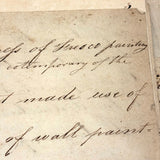 ess of Fresco painting
cotemporary of the
t made use of
of wall paint-